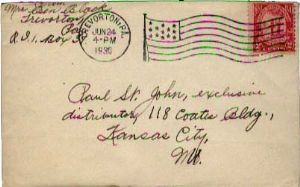 Mrs. Don Black
Trevorton,
Pa.
R.D. 1, Box
TREVORTON, PA.
JUN 24
4-PM
1935
Paul St. John, exclusive
distributor, 118 Coates Bldg.,
Kansas City,
Mo.